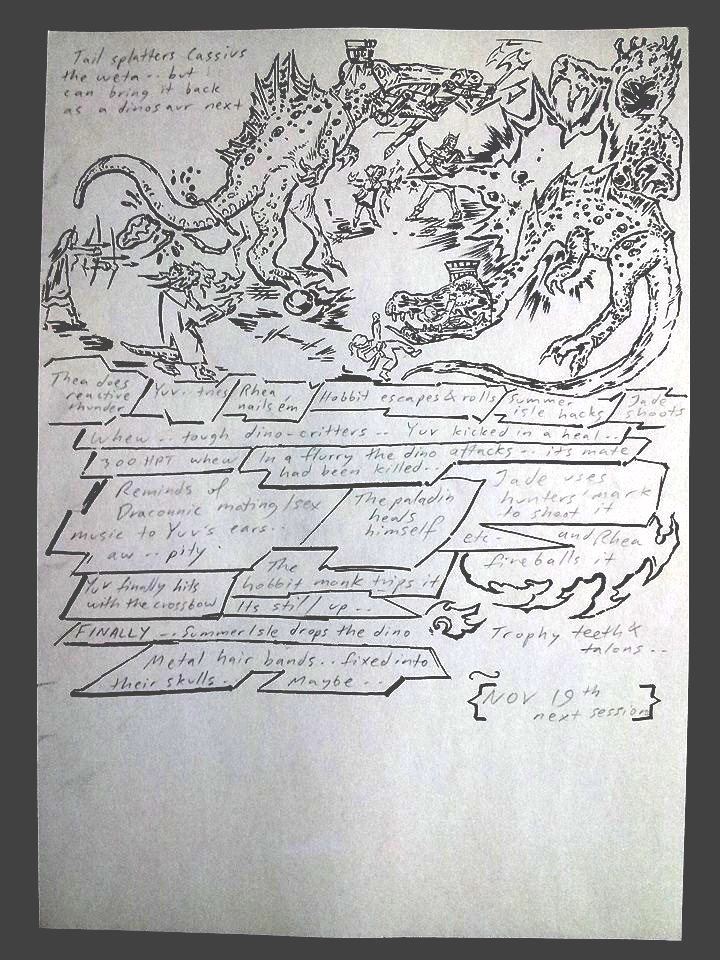 Tail splatters Cassius
the weta -- but
can bring it back
as a dinosaur next
Thea does
reactive
thunder
Yuv -- tries
Rhea
nails em
Hobbit escapes & rolls
Summer
isle hacks
Jade
shoots
Whew -- tough dino-critters -- Yuv kicked in a heal --
300 HPT whew
In a flurry the dino attacks -- its mate
had been killed --
Reminds of
Draconnic mating/sex
music to Yuv's ears --
aw -- pity
The paladin
heals
himself
Jade uses
hunters mark
to shoot it
etc- and Rhea
fireballs it
Yuv finally hits
with the crossbow
The
hobbit monk trips it
Its still up --
FINALLY -- SummerIsle drops the dino
Trophy teeth &
talons --
Metal hair bands -- fixed into
their skulls --
Maybe --
{NOV 19th
next session}